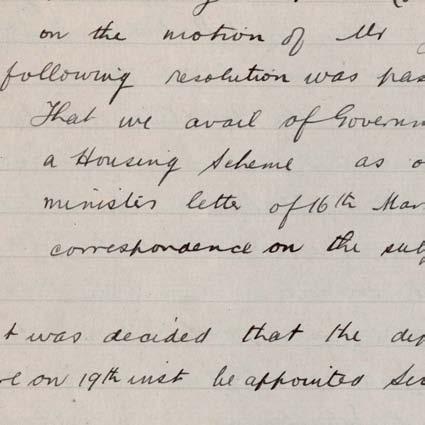 on the motion of Mr
following resolution was pas
That we avail of Governm
a Housing Scheme as o
minister letter of 16th Mar
correspondence on the sub
t was decided that the de
re on 19th inst be appointed Se